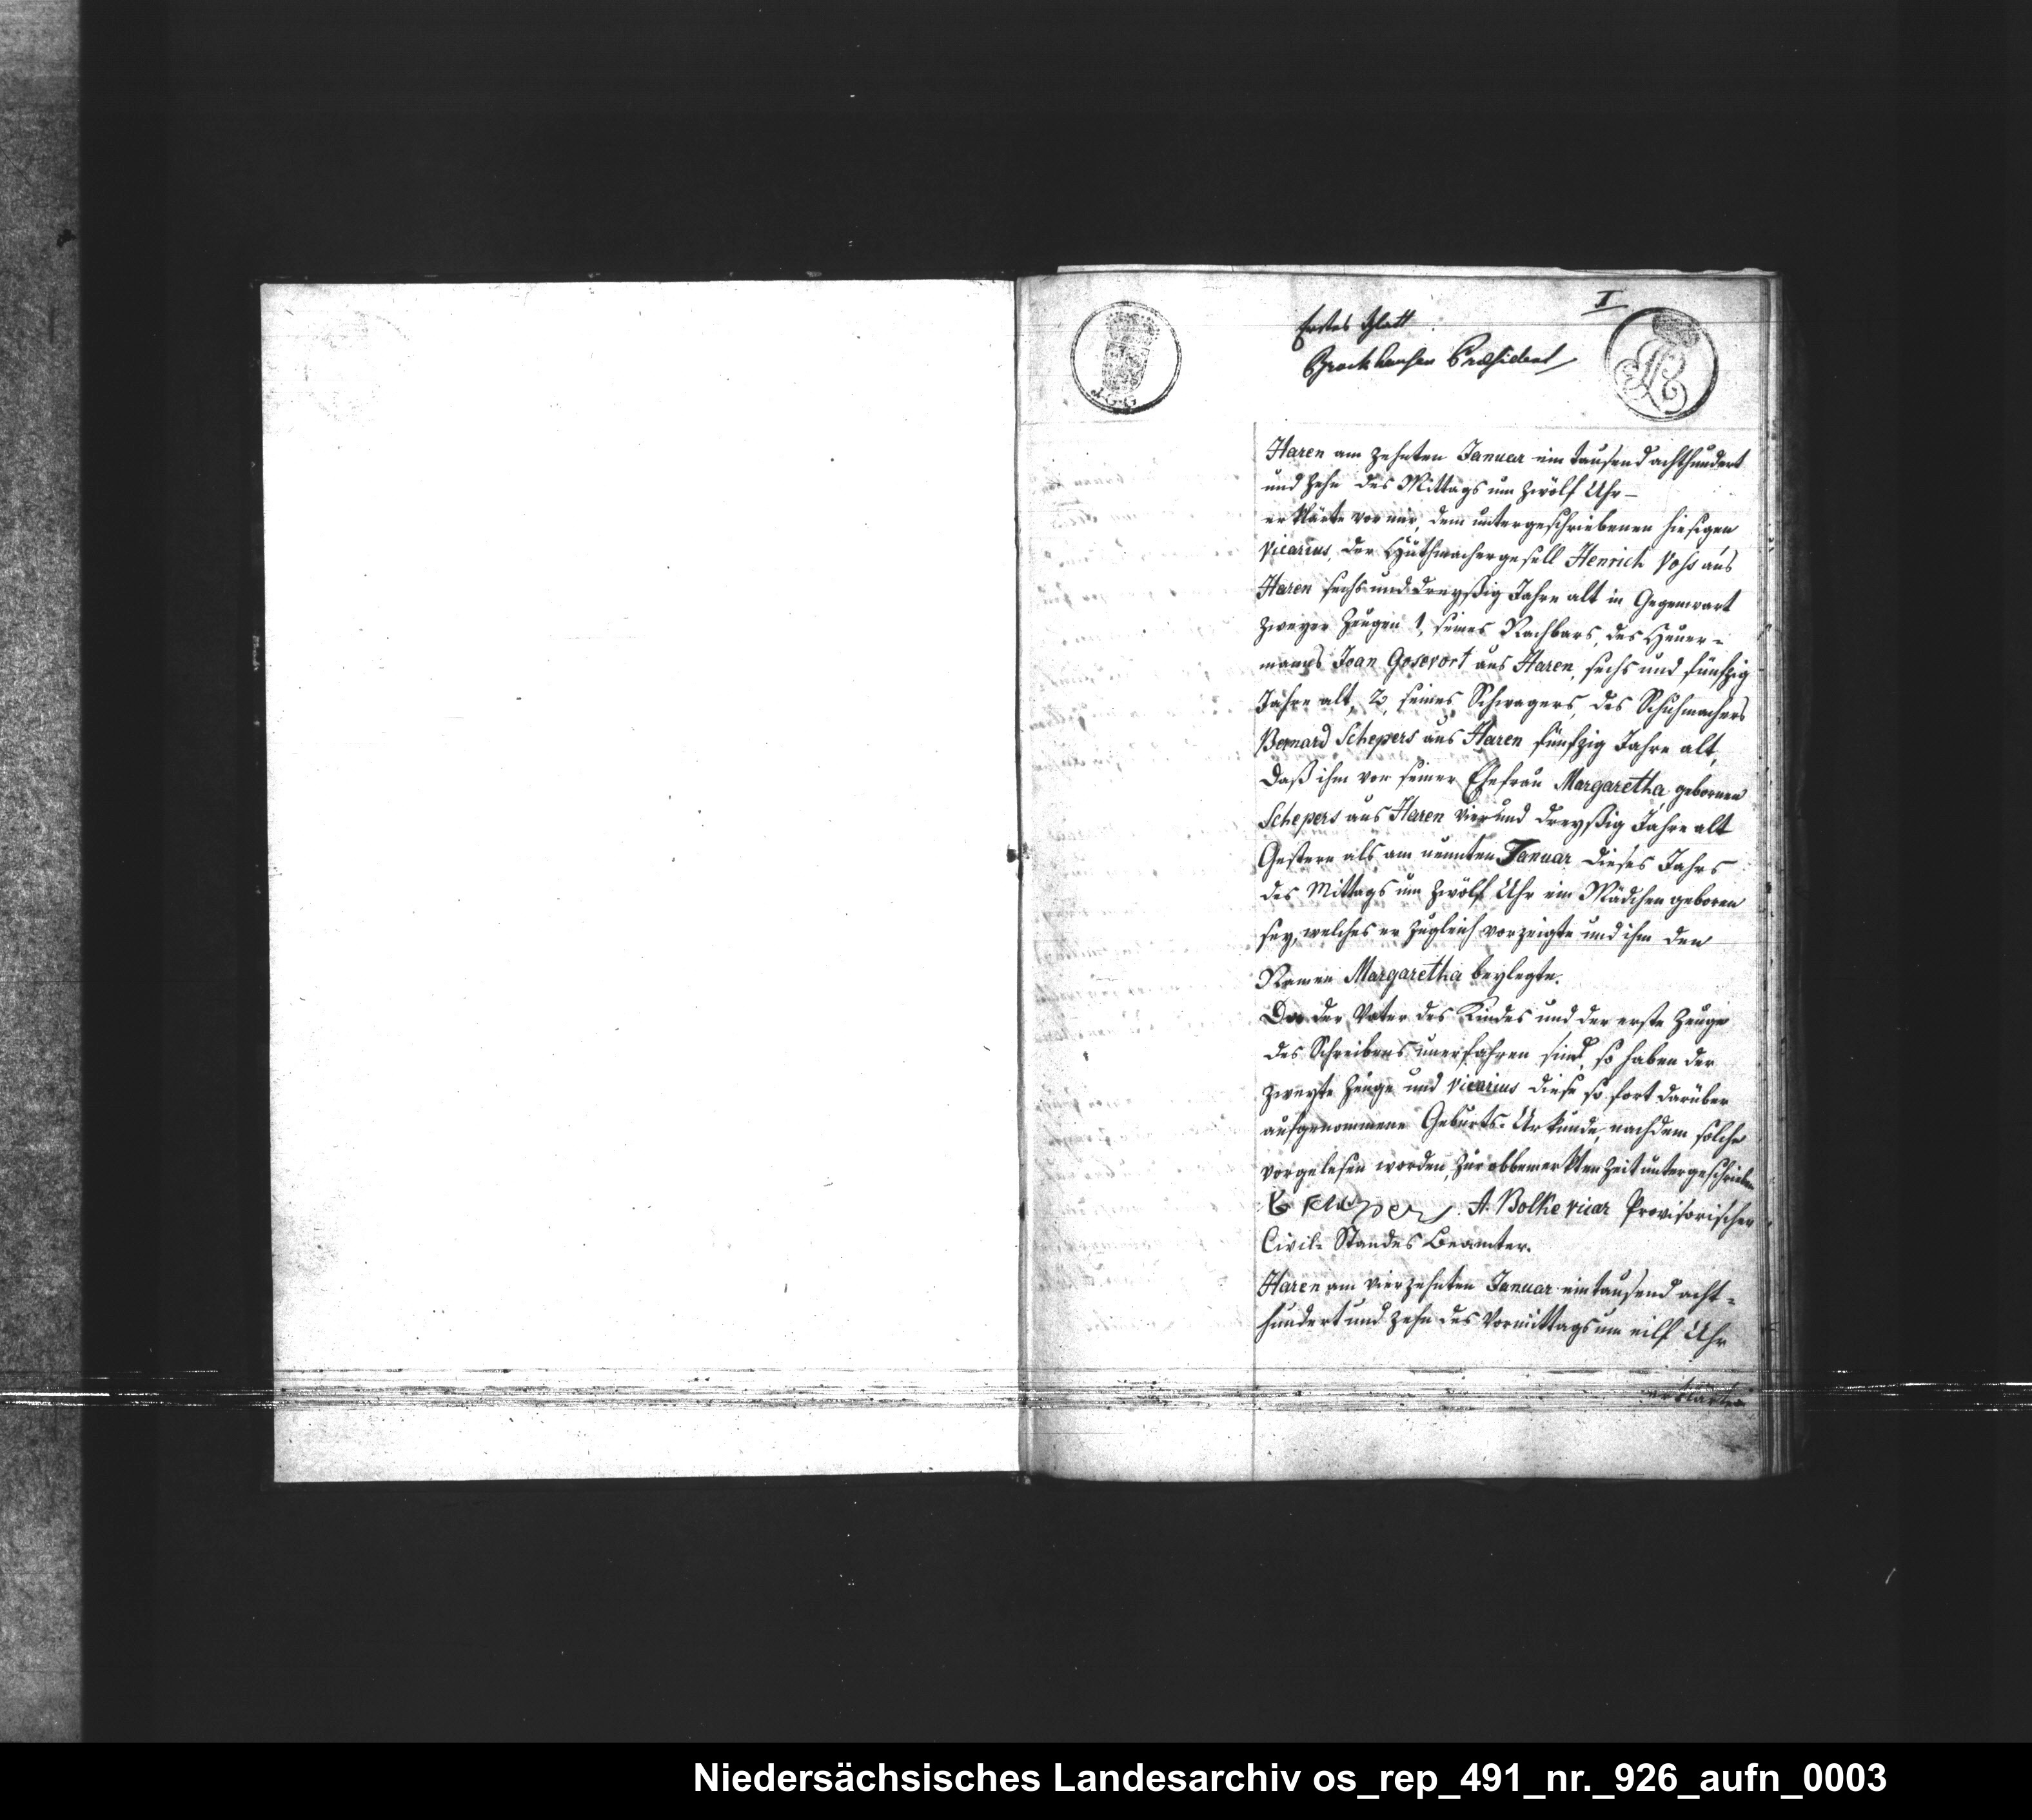 I
Erstes Blatt
Brockhausen Præsident
J.G.G.
Haren am zehnten Januar ein tausend achthundert
und zehn des Mittags um zwölf Uhr –
erklärte vor mir, dem untergeschriebenen hiesigen
Vicarius, der Huthmachergesell Henrich Voss aus
Haren sechs und dreyßig Jahre alt in Gegenwart
zweyer Zeugen 1, seines Nachbars, des Heuer=
manns Joan Gosevort aus Haren, sechs und fünfzig
Jahre alt, 2, seines Schwagers, des Schuhmachers
Bernard Schepers aus Haren fünfzig Jahre alt,
daß ihm von seiner Ehefrau Margaretha, gebornen
Schepers aus Haren vier und dreyßig Jahre alt
Gestern als am neunten Januar dieses Jahrs
des Mittags um zwölf Uhr ein Mädchen geboren
sey, welches er zugleich vorzeigte und ihm den
Namen Margaretha beylegte.
Da der Vater des Kindes und der erste Zeuge
des Schreibens unerfahren sind, so haben der
zweyte Zeuge und Vicarius diese so fort darüber
aufgenommene Geburts-Urkunde, nachdem solche
vorgelesen worden, zur obbemerkten Zeit untergeschrieben
A. Bolke vicar Provisorischer
Civil-Standes Beamter.
Haren am vierzehnten Januar eintausend acht=
hundert und zehn des Vormittags um eilf Uhr
erklärte
Niedersächsisches Landesarchiv os_rep_491_nr._926_aufn_0003